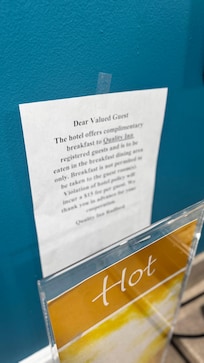 Dear Valued Guest
The hotel offers complimentary
breakfast to Quality Inn
registered guests and is to be
eaten in the breakfast dining area
only. Breakfast is not permitted to
be taken to the guest room(s).
Violation of hotel policy will
incur a $15 fee per guest. We
thank you in advance for your
cooperation.
Quality Inn Bradford
Hot